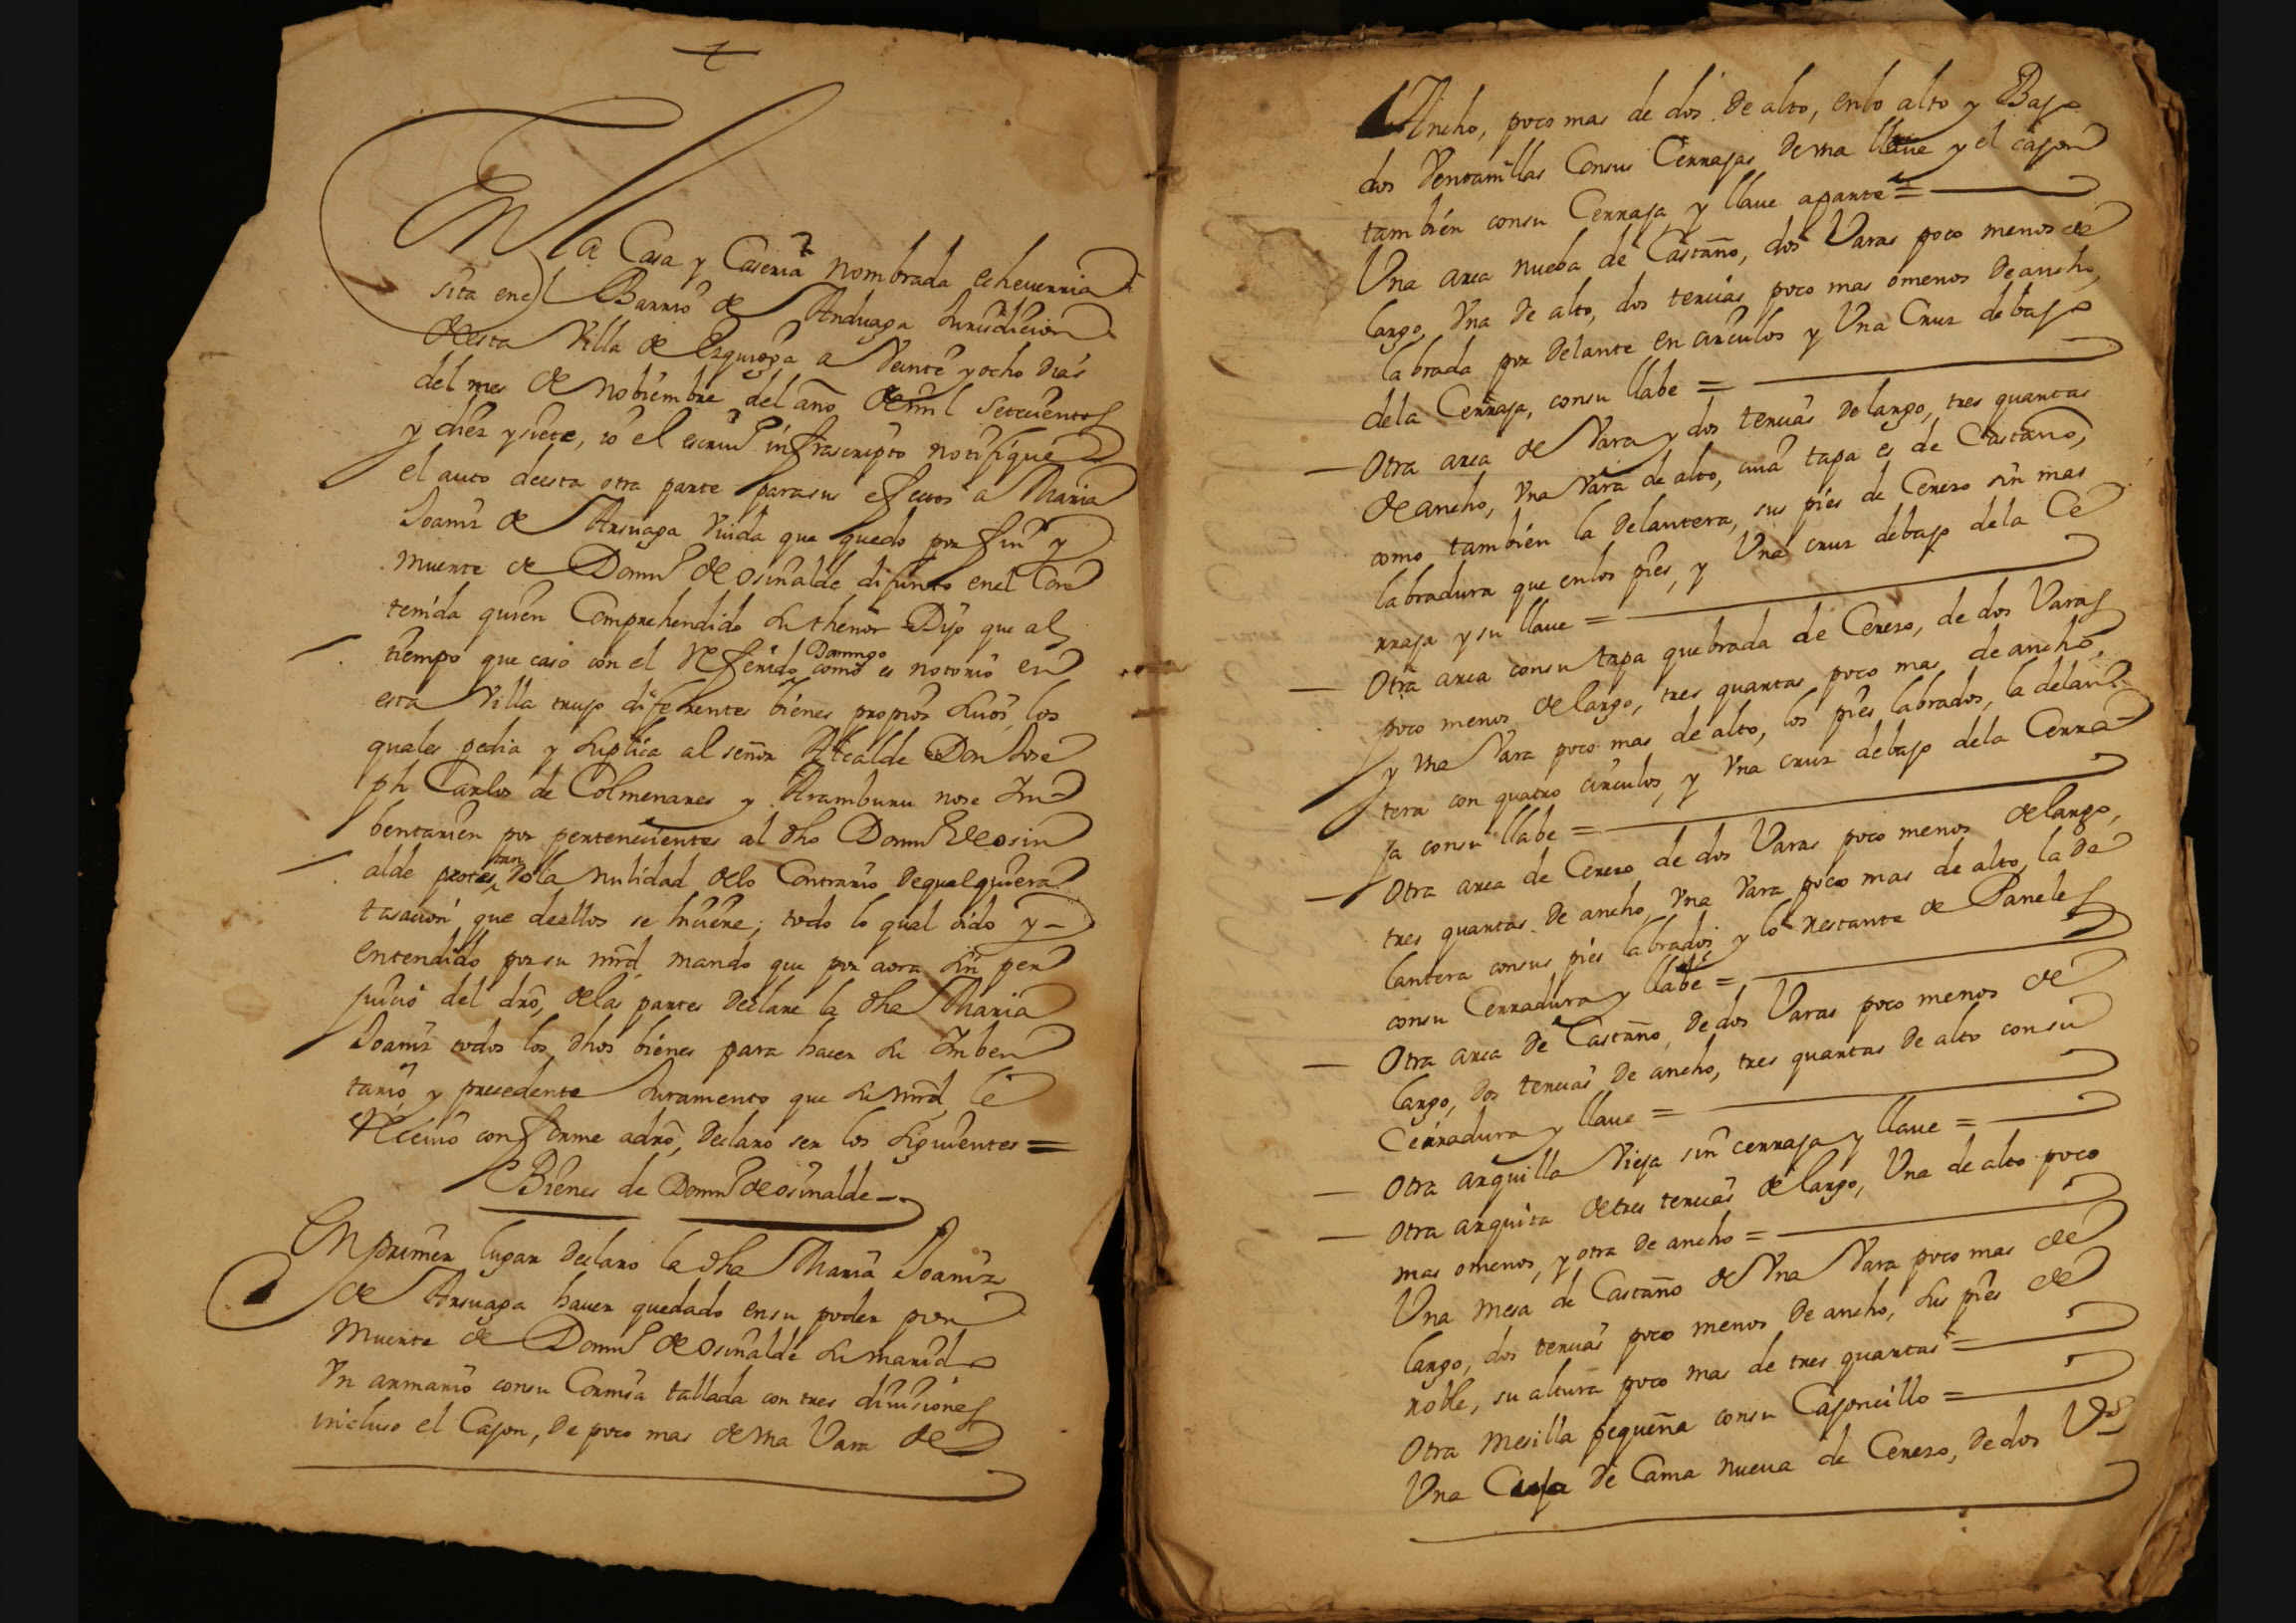 En la Casa y Caseria nombrada echeverria
sita enel Barrio de Anduaga Jurisdicion
deesta Villa de Ezquioga a Veinte y ocho dias
del mes de nobiembre del año demil setecientos
y diez y siete, io el escriu.º infrascripto notifique
el auto deesta otra parte parasus efectos a Maria
Joaniz de Arsuaga viuda que quedo por fin y
muerte de Dom.º de osinalde difunto enel Con
tenida quien Comprehendido su thenor Dijo que al
tiempo que caso con el Referido Domingo como es notorio en
esta Villa trujo diferentes bienes propios suios, los
quales pedia y suplica al señor Alcalde Don Jose
ph Carlos de Colmenares y Aramburu nose Im-
bentarien por pertenecientes al dho Dom.º de osin
alde protestando la nulidad delo Contrario dequalquiera
tasacion que deellos se hiciere; todo lo qual oido y-
entendido por su mrd, mando que por aora sin per
juicio del dro, delas partes declare la dha Maria
Joaniz todos los dhos bienes para hacer su Imben
tario, y precedente Juramento que su mrd, le
Recivio conforme adro, declaro ser los siguientes =
Bienes de Dom.º de osinalde-
En primer lugar declaro la dha Maria Joaniz
de Arsuaga haver quedado ensu poder por
muerte de Dom.º de osinalde su marido
Vn armario consu Cornisa tallada con tres divisiones
incluso el Cajon, de poco mas de vna Vara de
Ancho, poco mas de dos de alto, enlo alto y Bajo
dos Ventanillas Consus Cerrajas de vna llave y el cajon
también consu Cerraja y llave aparte =
Una arca nueba de Castaño, dos Varas poco menos de
largo, Vna de alto, dos tercias poco mas omenos de ancho,
labrada por delante en circulos y Una Cruz debajo
dela Cerraja, consu llabe =
— Otra arca de Vara y dos tercias de largo, tres quartas
de ancho, vna Vara de alto, cuia tapa es de Castaño,
como también la delantera, sus pies de Cerezo sin mas
labradura que enlos pies, y Una cruz debajo dela Ce
rraja y su llave =
— Otra arca consu tapa quebrada de Cerezo, de dos Varas
poco menos de largo, tres quartas poco mas de ancho,
y vna Vara poco mas de alto, los pies labrados, la delan-
tera con quatro circulos, y Vna cruz debajo dela Cerra-
ja consu llabe =
— Otra arca de Cerezo de dos Varas poco menos de largo,
tres quartas de ancho, Vna Vara poco mas de alto, la de
lantera consus pies labrados, y lo restante de Paneles
consu Cerradura y llabe =
— Otra arca de Castaño, de dos Varas poco menos de
largo, dos tercias de ancho, tres quartas de alto consu
Cerradura y llave =
— Otra arquilla Vieja sin cerraja y llave =
— Otra arquita de tres tercias de largo, Una de alto poco
mas omenos, y otra de ancho =
Una mesa de Castaño de Vna Vara poco mas de
largo, dos tercias poco menos de ancho, sus pies de
roble, su altura poco mas de tres quartas =
Otra mesilla pequeña consu Cajoncillo =
Una Cuja de Cama nueva de Cerezo, de dos V.s